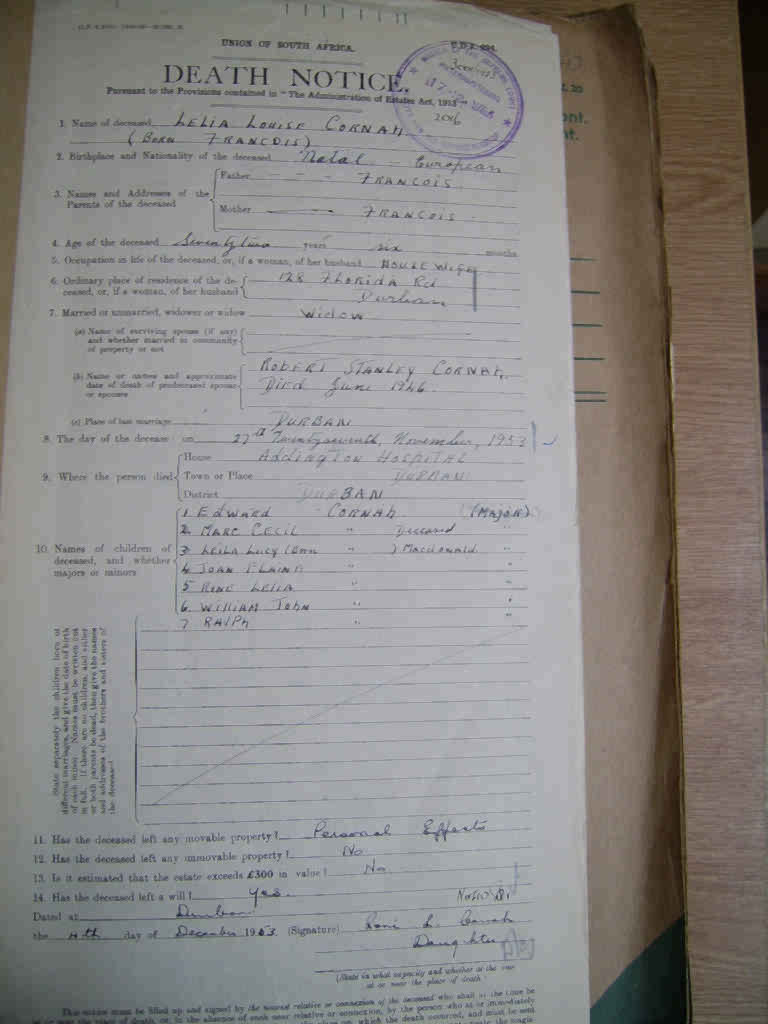 UNION OF SOUTH AFRICA.
DEATH NOTICE.
Pursuant to the Provisions contained in "The Administration of Estates Act, 1913"
2016
1. Name of deceased LELIA LOUISE CORNAH
(BORN FRANCOIS)
2. Birthplace and Nationality of the deceased Natal - European
3. Names and Addresses of the Parents of the deceased
Father FRANCOIS
Mother FRANCOIS
4. Age of the deceased Seventytwo years six months
5. Occupation in life of the deceased, or, if a woman, of her husband HOUSEWIFE
6. Ordinary place of residence of the de-
ceased, or, if a woman, of her husband
128 FLORIDA Rd
Durban
7. Married or unmarried, widower or widow WIDOW
(a) Name of surviving spouse (if any)
and whether married in community
of property or not
(b) Name or names and approximate
date of death of predeceased spouse
or spouses
ROBERT STANLEY CORNAH.
Died June 1946.
(c) Place of last marriage DURBAN
8. The day of the decease on 27th Twentyseventh, November, 1953
9. Where the person died
House ADDINGTON HOSPITAL
Town or Place DURBAN
District DURBAN
10. Names of children of
deceased, and whether
majors or minors
1. EDWARD CORNAH (MAJOR)
2. MARC CECIL " Deceased "
3 LEILA LUCY (Born " ) Macdonald "
4 JOAN ELAINE " "
5 RENE LELIA " "
6. WILLIAM JOHN " "
7. RALPH " "
State separately the children born of
different marriages, and give the date of birth
of each minor. Names must be written out
in full. If there are no children, and either
or both parents be dead, then give the names
and addresses of the brothers and sisters of
the deceased
11. Has the deceased left any movable property? Personal Effects
12. Has the deceased left any immovable property? No
13. Is it estimated that the estate exceeds £300 in value? No
14. Has the deceased left a will? Yes.
Dated at Durban
the 11th day of December 1953 (Signature)
Daughter
(State in what capacity and whether at the time
at or near the place of death
This notice must be filled up and signed by the nearest relative or connection of the deceased who shall at the time be